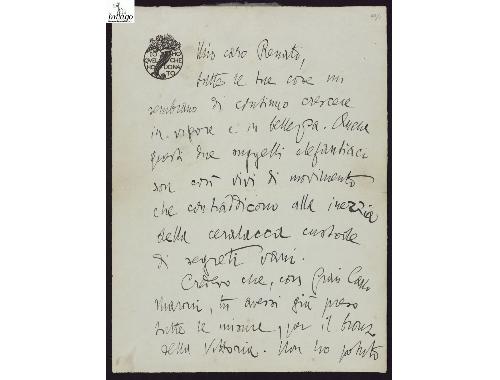 intago
IO HO
QVEL CHE
HO DONA
TO
Mio caro Renato,
tutte le tue cose mi
sembrano di continuo crescere
in vigore e in bellezza. Anche
questi due suggelli elefantiaci
son così vivi di movimento
che contraddicono alla inezzia
della ceralacca custode
di segreti vani.
Credevo che, con Gian Carlo
Maroni, tu avessi già preso
tutte le misure, per il bronzo
della Vittoria. Non ho potuto